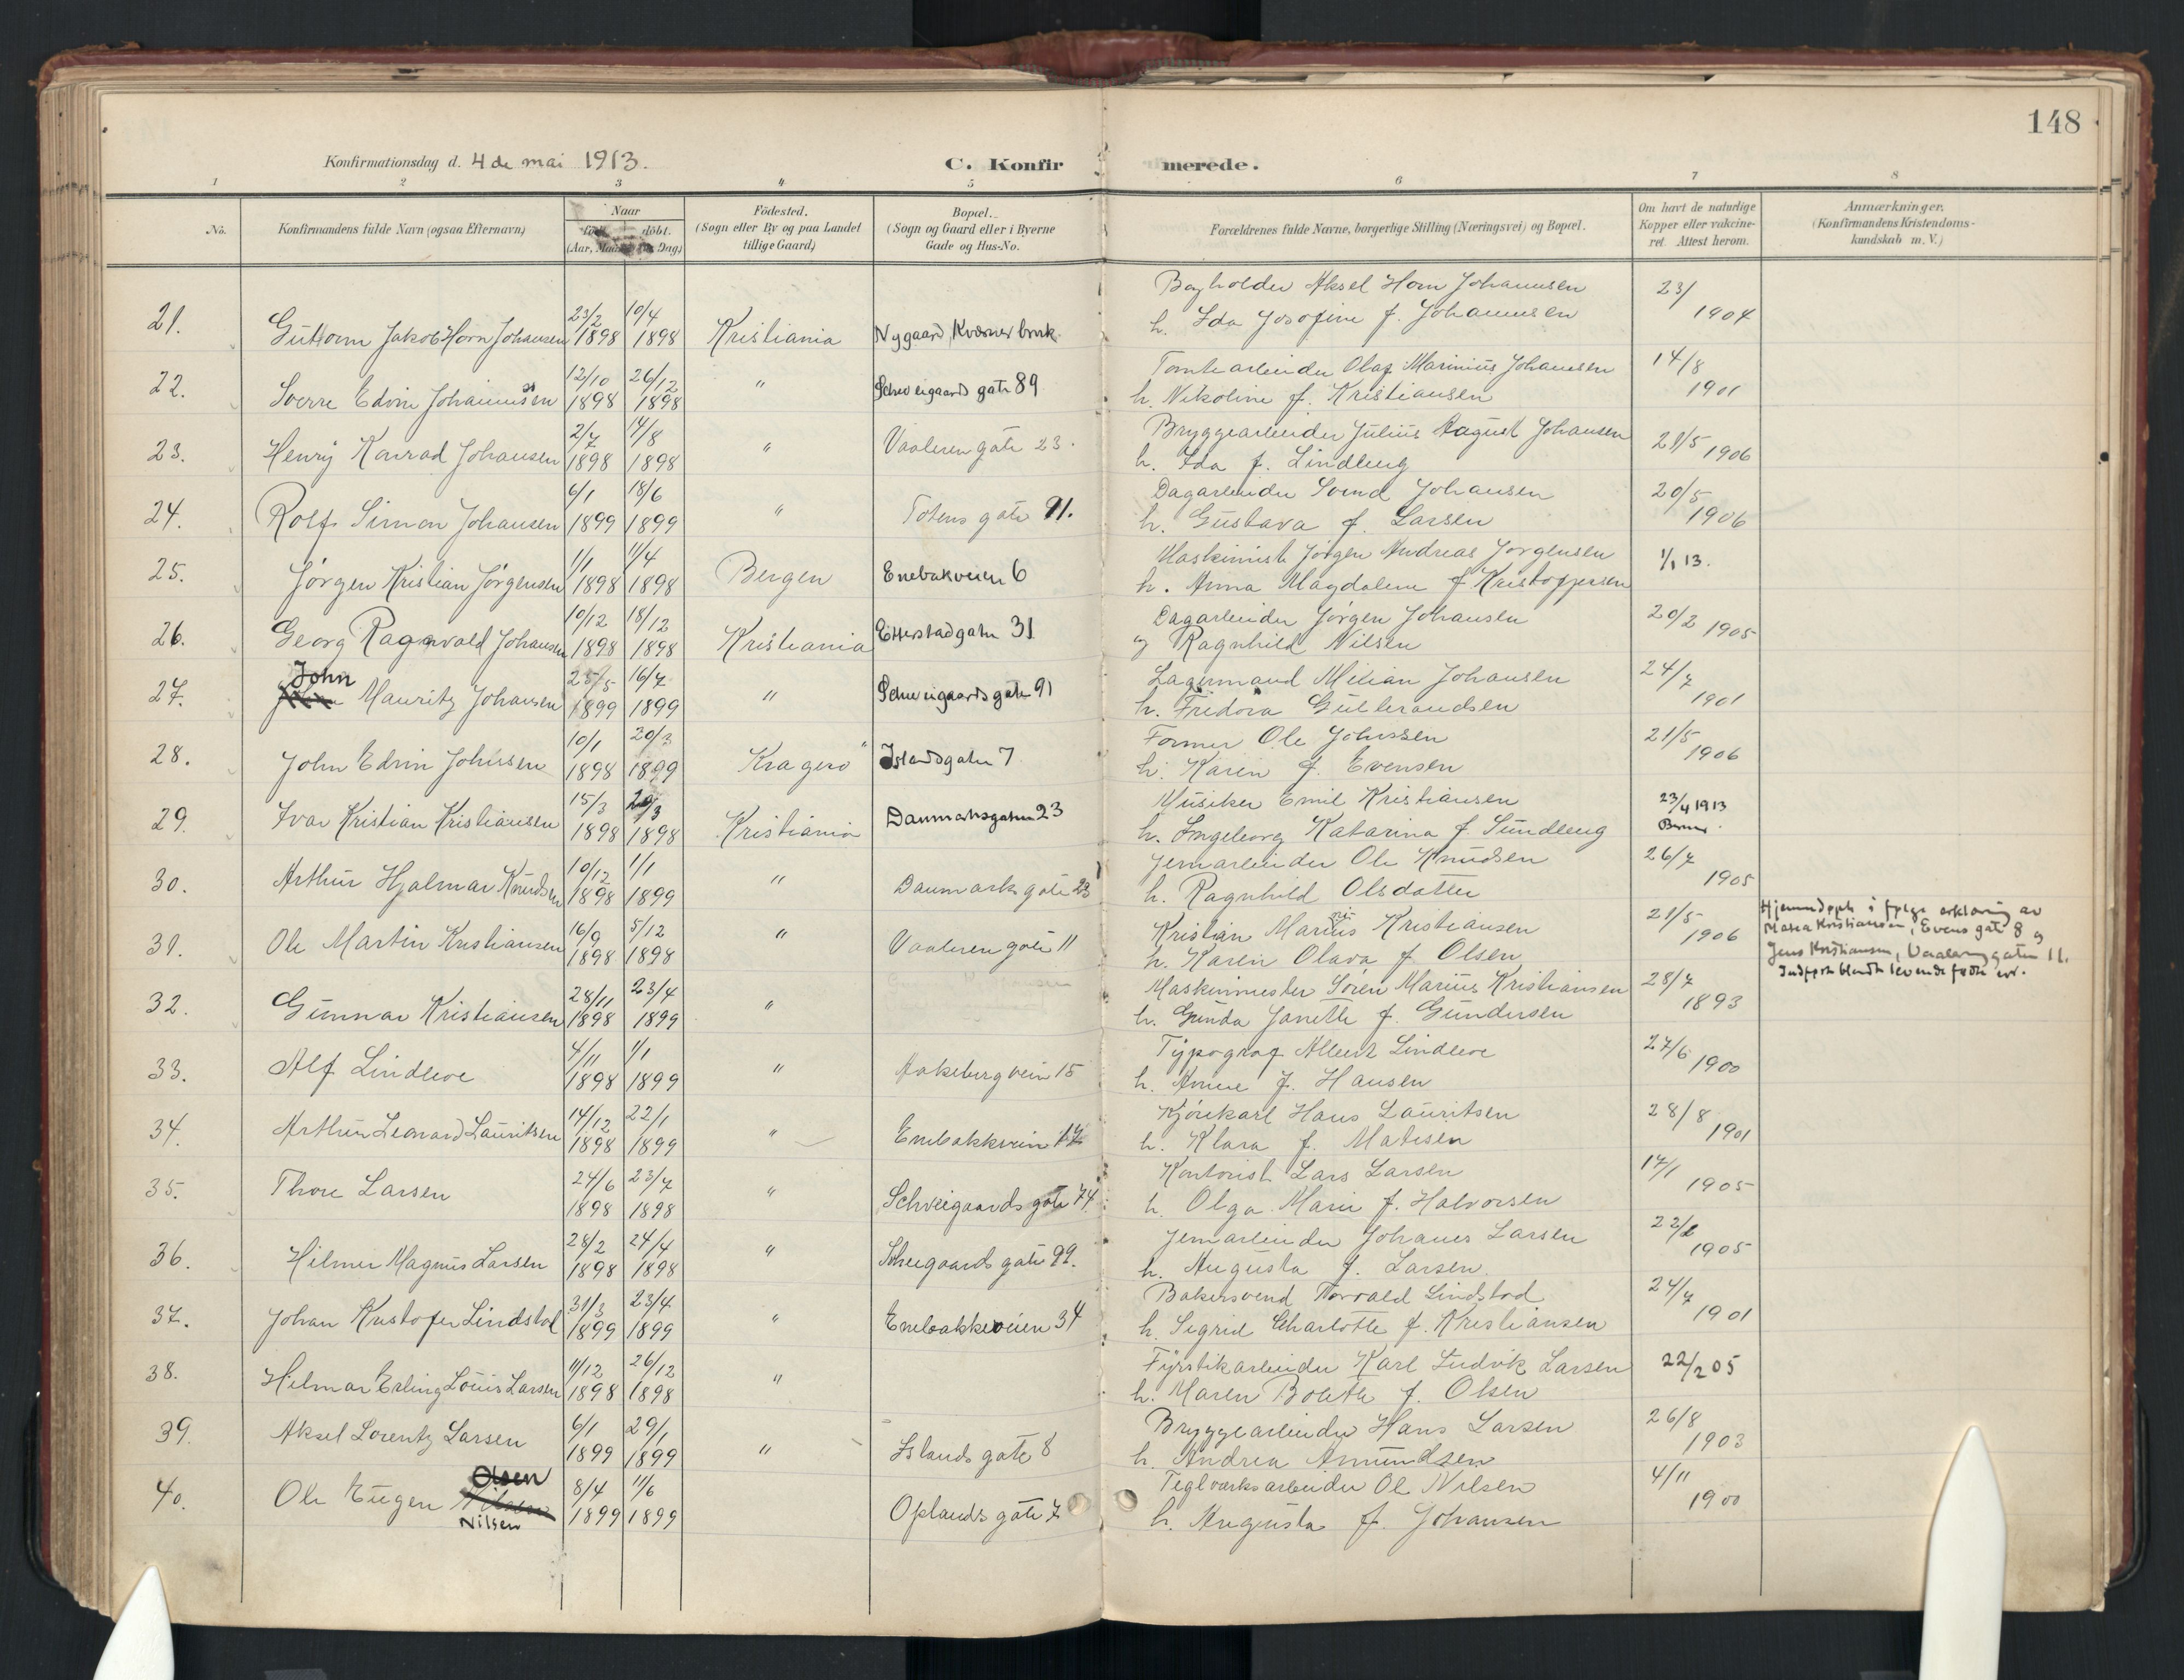 148
Konfirmationsdag d. 4 de mai 1913.
C. Konfirmerede.
1 2 3 4 5 6 7 8
No.
Konfirmandens fulde Navn (ogsaa Efternavn)
Naar
född döbt.
(Aar, Maaned og Dag)
Födested.
(Sogn eller By og paa Landet
tillige Gaard)
Bopæl.
(Sogn og Gaard eller i Byerne
Gade og Hus-No.
Forældrenes fulde Navne, borgerlige Stilling (Næringsvei) og Bopæl.
Om havt de naturlige
Kopper eller vakcine-
ret. Attest herom.
Anmærkninger.
(Konfirmandens Kristendoms-
kundskab m. V.)
21. Guttorm Jakob Horn Johansen 23/2 1898 10/4 1898 Kristiania Nygaard, Kværnerbruk Bogholder Aksel Horn Johannsen 23/ 1904
h. Ida Josofine f. Johannsen
22. Sverre Edvin Johannsen 12/10 1898 26/12 1898 " Schweigaards gate 89 Tomtearbeider Olaf Marinius Johansen 14/8 1901
h. Nikoline f. Kristiansen
23. Henry Konrad Johansen 2/7 1898 14/8 1898 " Vaaleren gate 23. Bryggearbeider Julius August Johansen 21/5 1906
h. Ida f. Lindberg
24. Rolf Simon Johansen 6/1 1899 18/6 1899 " Totens gate 91. Dagarbeider Svend Johansen 20/5 1906
h. Gustava f. Larsen
25. Jørgen Kristian Jørgensen 1/1 1898 11/4 1898 Bergen Enebakveien 6 Maskinist Jörgen Andreas Jorgensen 1/1 13.
h. Anna Magdalene f Kristoffersen
26. Georg Ragnvald Johansen 10/12 1898 18/12 1898 Kristiania Etterstadgaten 31 Dagarbeider Jørgen Johansen 20/2 1905
og Ragnhild Nilsen
27. John Mauritz Johansen 25/5 1899 16/7 1899 " Schweigaards gate 91 Lagermand Milian Johansen 24/7 1901
h. Fredora Gulbrandsen
28. John Edvin Johnsen 10/1 1898 20/3 1899 Kragerø Islandsgaten 7 Former Ole Johnsen 21/5 1906
h. Karen f. Evensen
29. Ivar Kristian Kristiansen 15/3 1898 /3 1898 Kristiania Danmarksgaten 23 Musiker Emil Kristiansen 23/4 1913
h. Ingeborg Katarina f. Sundberg
30. Arthur Hjalmar Knudsen 10/12 1898 1/1 1899 " Danmarks gate 23 Jernarbeider Ole Knudsen 26/7 1905
h. Ragnhild Olsdatter
31. Ole Martin Kristiansen 16/9 1898 5/12 1898 " Vaaleren gate 11 Kristian Marius Kristiansen 21/5 1906
h. Karen Olava f Olsen
Hjemmedøpt i følge erklæring av
Maria Kristiansen, Evens gate 8 og
Jens Kristiansen, Vaalerenggaten 11.
Indført blandt levende fødte
32. Gunnar Kristiansen 28/11 1898 23/4 1899 " Maskinmester Sören Marius Kristiansen 28/7 1893
h. Gunda Janette f. Gundersen
33. Alf Lindboe 4/11 1898 1/1 1899 " Aakeberg vein 15 Typograf Albert Lindboe 27/6 1900
h. Anne f. Hansen
34. Arthur Leonard Lauritsen 14/12 1898 22/1 1899 " Enebakkvein 17 Kjørekarl Hans Lauritsen 28/8 1901
h. Klara f. Matisen
35. Thore Larsen 24/6 1898 23/7 1898 " Schveigaards gate 74. Kontorist Lars Larsen 17/1 1905
h. Olga Marie f. Halvorsen
36. Hilmer Magnus Larsen 28/2 1898 24/4 1898 " Schvegaards gate 99. Jernarbeider Johanes Larsen 22/2 1905
h. Augusta f. Larsen.
37. Johan Kristofer Lindstad 31/3 1899 23/4 1899 " Enebakkveien 34 Bakersvend Torvald Lindstad 24/7 1901
h. Sigrid Charlotte f. Kristiansen
38. Hilmar Erling Louis Larsen 11/12 1898 26/12 1898 " Fyrstikarbeider Karl Ludvik Larsen 22/2 05
h. Maren Bolette f. Olsen
39. Aksel Lorentz Larsen 6/1 1899 29/1 1899 " Islands gate 8 Bryggearbeider Hans Larsen 26/8 1903
h. Andrea Amundsen
40. Ole Eugen Olsen Nilsen 8/4 1899 11/6 1899 Oplands gate 7 Teglværksarbeider Ol Nilsen 4/11 1900
h. Augusta f. Johansen